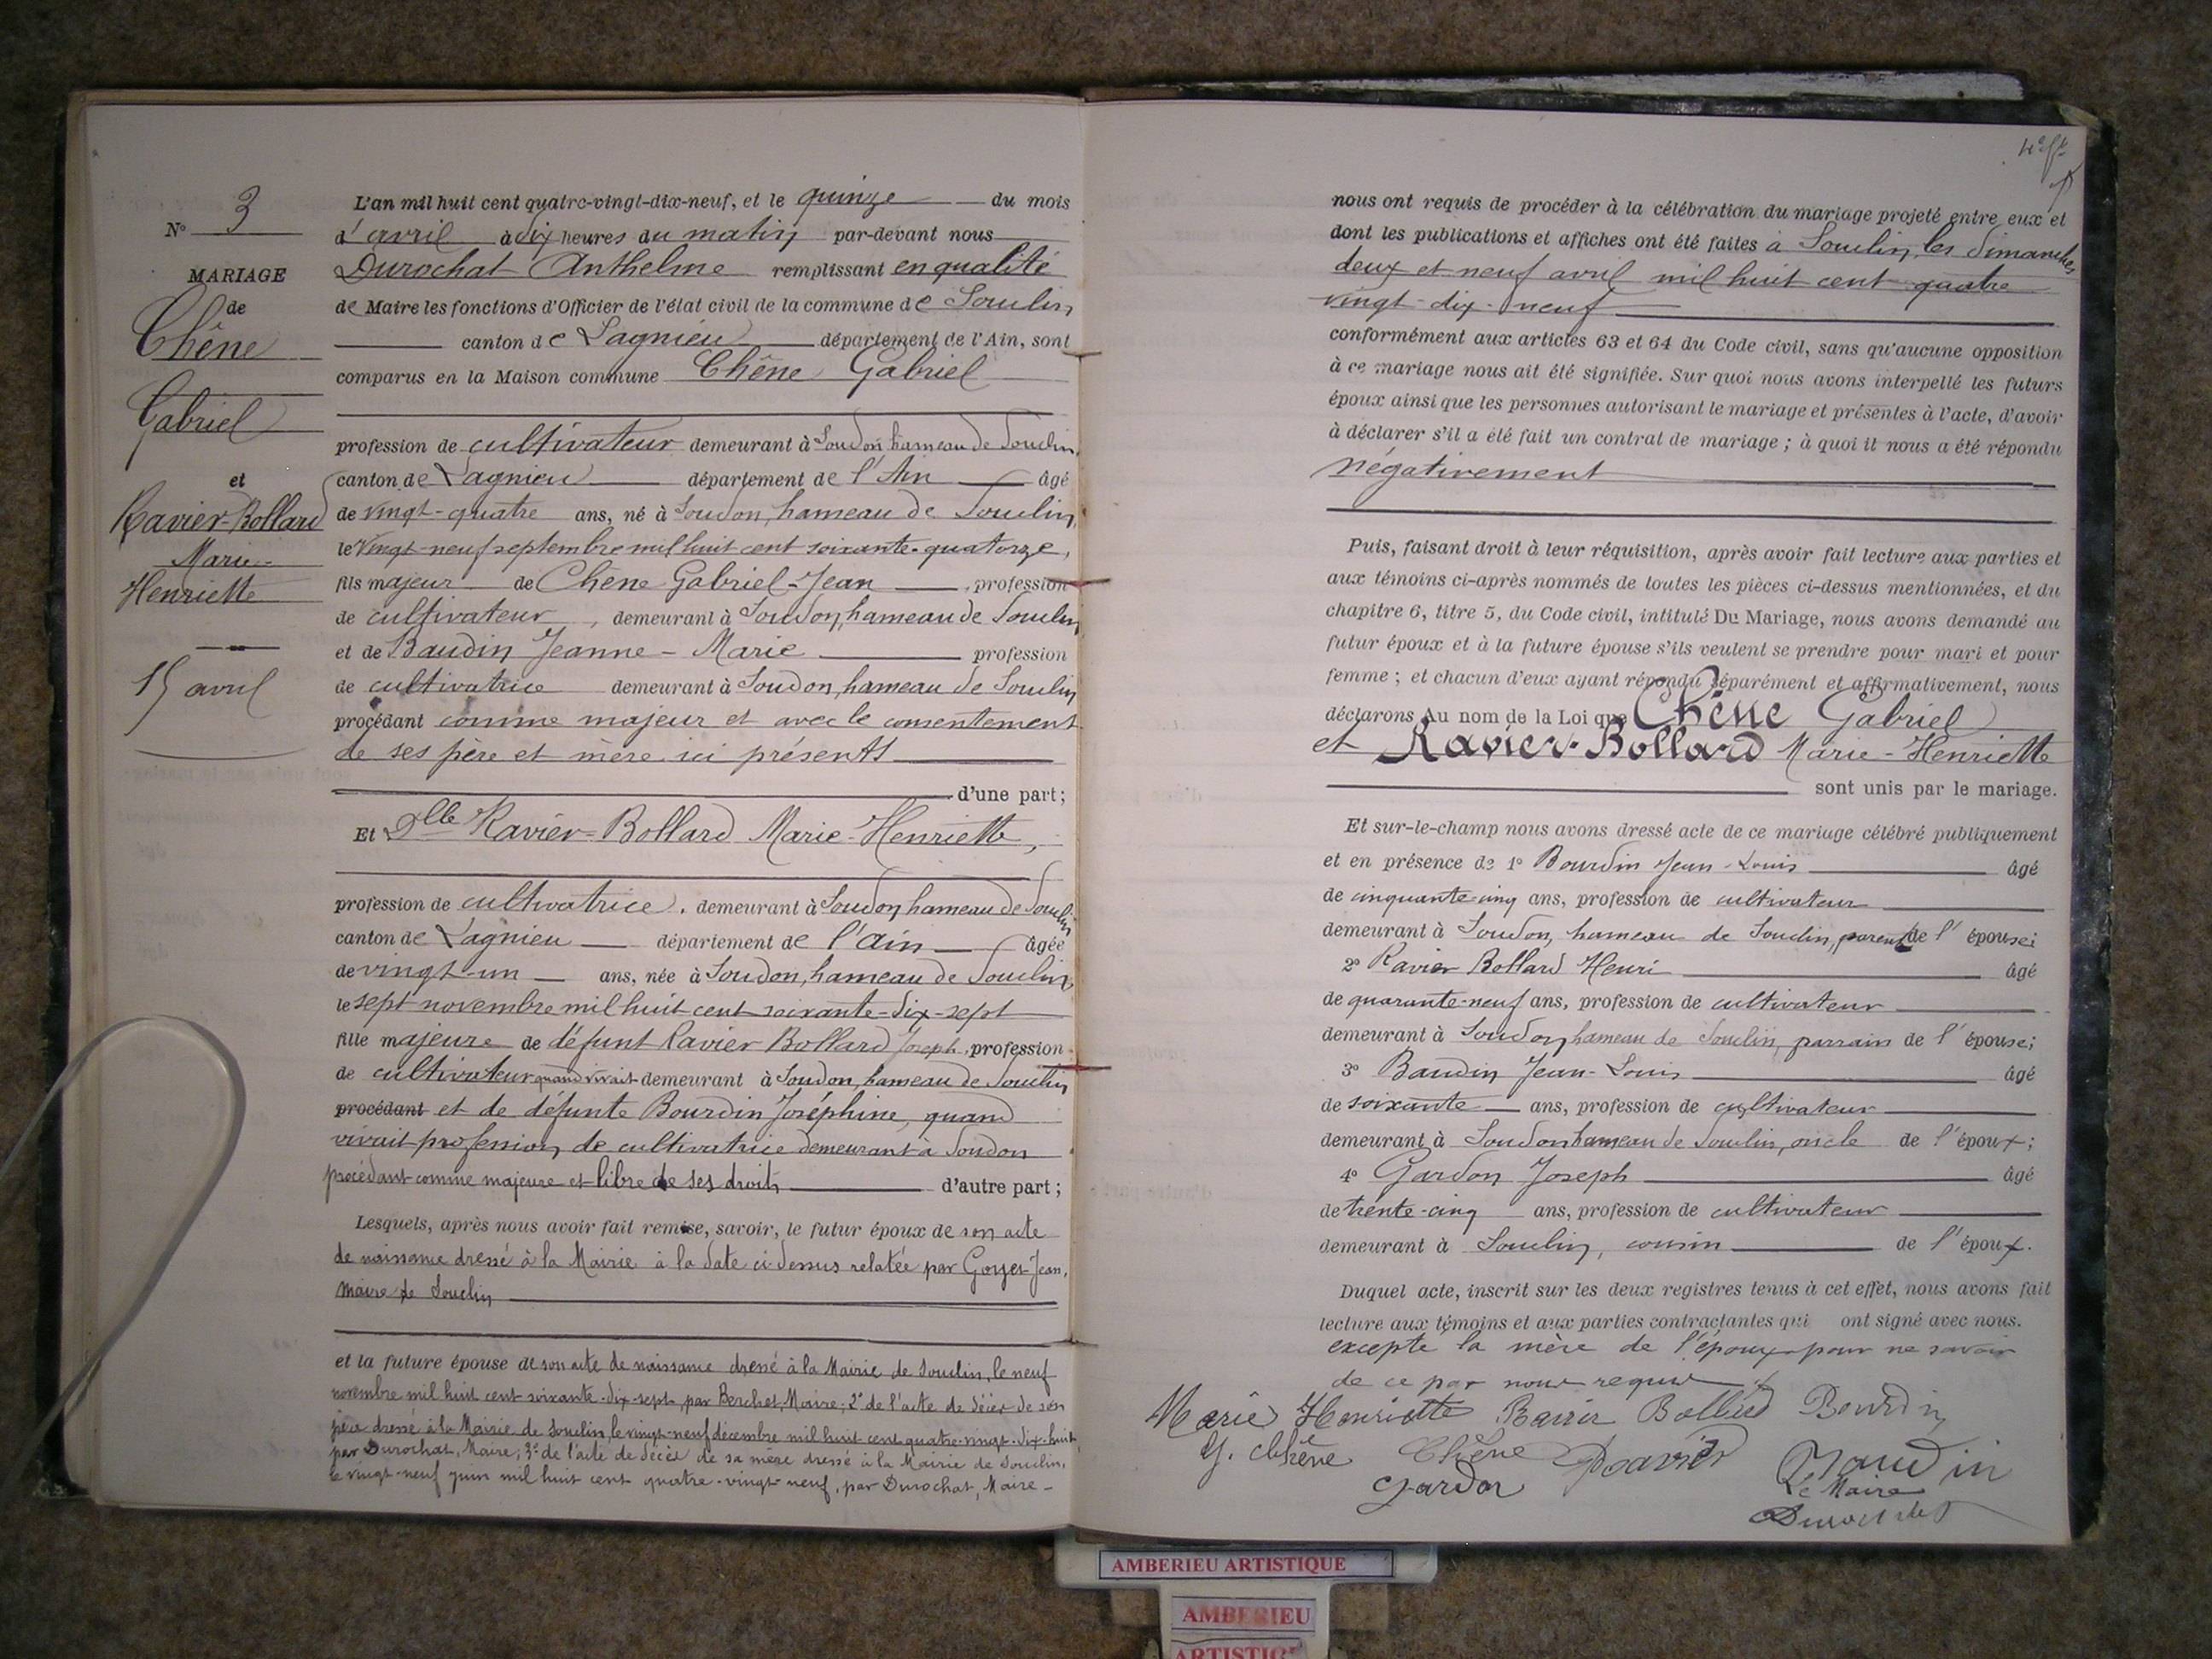 N° 3
MARIAGE
de
Chêne
Gabriel
et
Ravier-Bollard
Marie-
Henriette
15 avril
L'an mil huit cent quatre-vingt-dix-neuf, et le quinze du mois
d'avril à dix heures du matin par-devant nous
Durochat Anthelme remplissant en qualité
de Maire les fonctions d'Officier de l'état civil de la commune de Souclin
canton de Lagnieu département de l'Ain, sont
comparus en la Maison commune Chêne Gabriel
profession de cultivateur demeurant à Soudon hameau de Souclin,
canton de Lagnieu département de l'Ain âgé
de vingt-quatre ans, né à Soudon, hameau de Souclin,
le vingt-neuf septembre mil huit cent soixante-quatorze,
fils majeur de Chêne Gabriel-Jean, profession
de cultivateur, demeurant à Soudon, hameau de Souclin
et de Baudin Jeanne-Marie profession
de cultivatrice demeurant à Soudon, hameau de Souclin
procédant comme majeur et avec le consentement
de ses père et mère ici présents
d'une part;
Et Dlle Ravier-Bollard Marie-Henriette,
profession de cultivatrice, demeurant à Soudon hameau de Souclin
canton de Lagnieu département de l'Ain âgée
de vingt-un ans, née à Soudon, hameau de Souclin
le sept novembre mil huit cent soixante-dix-sept
fille majeure de défunt Ravier Bollard Joseph, profession
de cultivateur quand vivait demeurant à Soudon, hameau de Souclin
procédant et de défunte Bourdin Joséphine, quand
vivait profession de cultivatrice demeurant à Soudon
procédant comme majeure et libre de ses droits d'autre part;
Lesquels, après nous avoir fait remise, savoir, le futur époux de son acte
de naissance dressé à la Mairie à la date ci-dessus relatée par Goyet Jean,
Maire de Souclin
et la future épouse de son acte de naissance dressé à la Mairie de Souclin, le neuf
novembre mil huit cent soixante-dix-sept, par Berchet, Maire; 2° de l'acte de décès de son
père dressé à la Mairie de Souclin, le vingt-neuf décembre mil huit cent quatre-vingt-dix-huit
par Durochat, Maire; 3° de l'acte de décès de sa mère dressé à la Mairie de Souclin,
le vingt-neuf juin mil huit cent quatre-vingt-neuf, par Durochat, Maire-
nous ont requis de procéder à la célébration du mariage projeté entre eux et
dont les publications et affiches ont été faites à Souclin, les dimanches
deux et neuf avril mil huit cent quatre
vingt-dix-neuf
conformément aux articles 63 et 64 du Code civil, sans qu'aucune opposition
à ce mariage nous ait été signifiée. Sur quoi nous avons interpellé les futurs
époux ainsi que les personnes autorisant le mariage et présentes à l'acte, d'avoir
à déclarer s'il a été fait un contrat de mariage; à quoi il nous a été répondu
négativement
Puis, faisant droit à leur réquisition, après avoir fait lecture aux parties et
aux témoins ci-après nommés de toutes les pièces ci-dessus mentionnées, et du
chapitre 6, titre 5, du Code civil, intitulé Du Mariage, nous avons demandé au
futur époux et à la future épouse s'ils veulent se prendre pour mari et pour
femme; et chacun d'eux ayant répondu séparément et affirmativement, nous
déclarons Au nom de la Loi que Chêne Gabriel
et Ravier-Bollard Marie-Henriette
sont unis par le mariage.
Et sur-le-champ nous avons dressé acte de ce mariage célébré publiquement
et en présence de 1° Bourdin Jean-Louis âgé
de cinquante-cinq ans, profession de cultivateur
demeurant à Soudon, hameau de Souclin, parent de l'épouse;
2° Ravier Bollard Henri âgé
de quarante-neuf ans, profession de cultivateur
demeurant à Soudon hameau de Souclin, parrain de l'épouse;
3° Baudin Jean-Louis âgé
de soixante ans, profession de cultivateur
demeurant à Soudon hameau de Souclin, oncle de l'époux;
4° Gardon Joseph âgé
de trente-cinq ans, profession de cultivateur
demeurant à Souclin, cousin de l'époux.
Duquel acte, inscrit sur les deux registres tenus à cet effet, nous avons fait
lecture aux témoins et aux parties contractantes qui ont signé avec nous.
excepté la mère de l'époux pour ne savoir
de ce par nous requise
Marie Henriette Ravier Bollard Bourdin
G. Chêne Chêne Ravier Baudin
Gardon
Le Maire
Durochat
AMBERIEU ARTISTIQUE
AMBERIEU
ARTISTIQUE